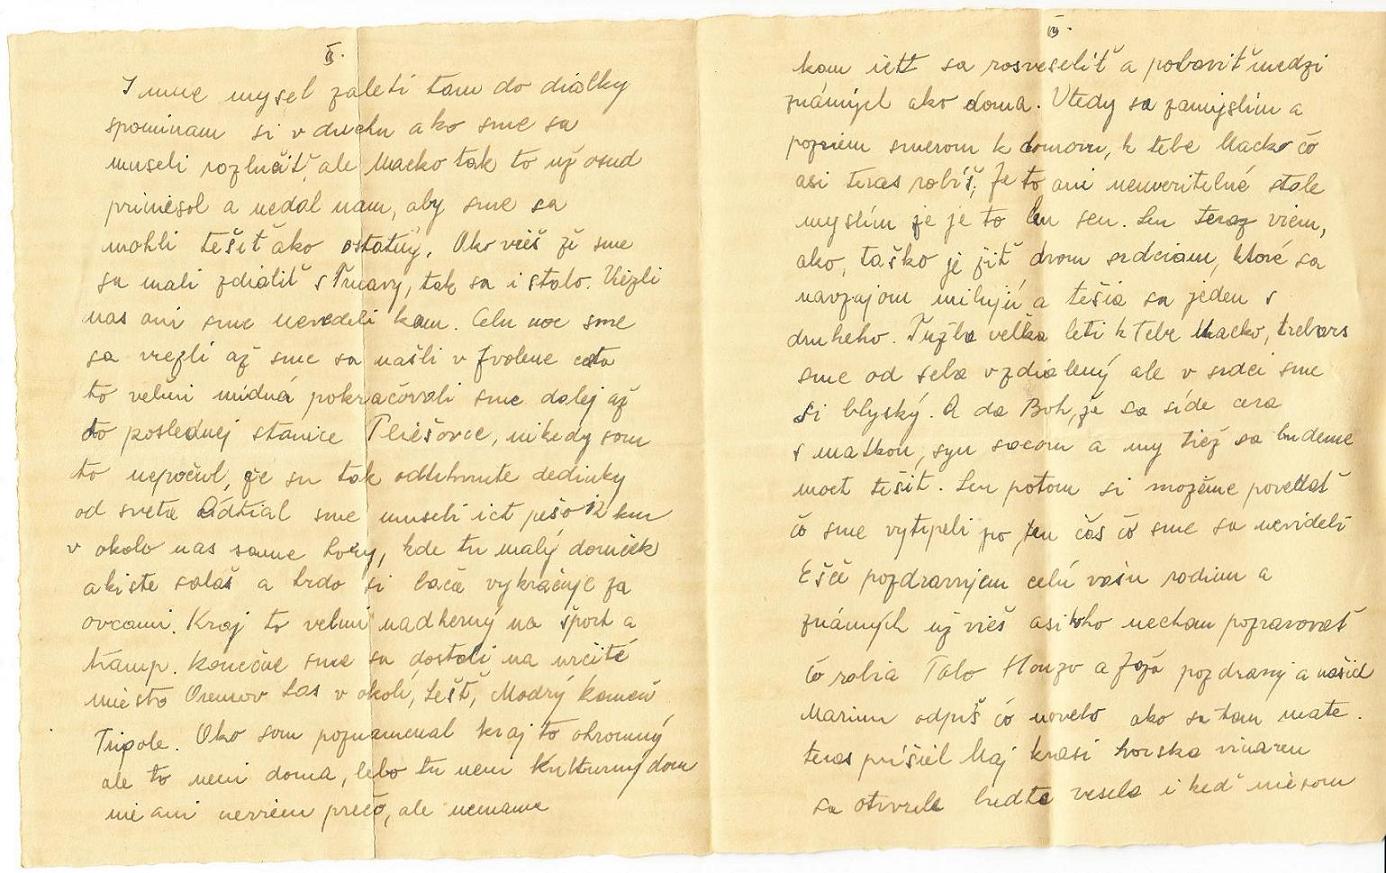 II.
I mne mysel zaletí tam do diálky
spominam si v duchu ako sme sa
museli rozlučiť, ale Macko tak to už osud
priniesol a nedal nam, aby sme sa
mohli tešiť ako ostatný. Ako vieš že sme
sa mali zdialiť s Trnavy, tak sa i stalo. Viezli
nas ani sme nevedeli kam. Celu noc sme
sa viezli až sme sa našli v Zvolene cesta
to velmi nudná pokračovali sme dalej až
do poslednej stanice Pliešovce, nikedy som
to nepočul, že su tak odtrhnute dedinky
od sveta Odtial sme museli ict pešo 12 km
v okolo nas same hory, kde tu malý domček
a kiste salaš a hrdo si bača vykračuje za
ovcami. Kraj to velmi nadherný na šport a
tramp. konečne sme sa dostali na určité
miesto Oremov Las v okolí, Lešť, Modrý kameň
Tripole. Ako som poznamenal kraj to ohromný
ale to neni doma, lebo tu neni kulturný dom
nie ani neviem prečo, ale nemame
IV.
kam ictť sa rosveseliť a pobaviť medzi
známých ako doma. Vtedy sa zamyslim a
pozriem smerom k domovu, k tebe Macko čo
asi teras robíš, Je to ani neuveritelné stale
myslím že je to len sen. Len teraz viem,
ako, taško je žiť dvom srdciam, ktoré sa
navzajom milujú a tešia sa jeden s
druheho. Tužba velka leti k Tebe Macko, trebars
sme od seba vzdialený ale v srdci sme
si blyský. A da Boh, že sa síde cera
s matkou, syn socom a my tiež sa budeme
moct tešiť. Len potom si možeme povedať
čo sme vytrpeli po ten čas čo sme sa nevideli
Ešče pozdravujem celú vašu rodinu a
známých už vieš asi koho necham pozravovať
čo robia Talo Honzo a Joža pozdravuj a našid
Marinu odpíš čo noveho ako sa tam mate.
teras príšiel Maj krasi horska vinaren
sa otvorila budte vesela i keď nie som